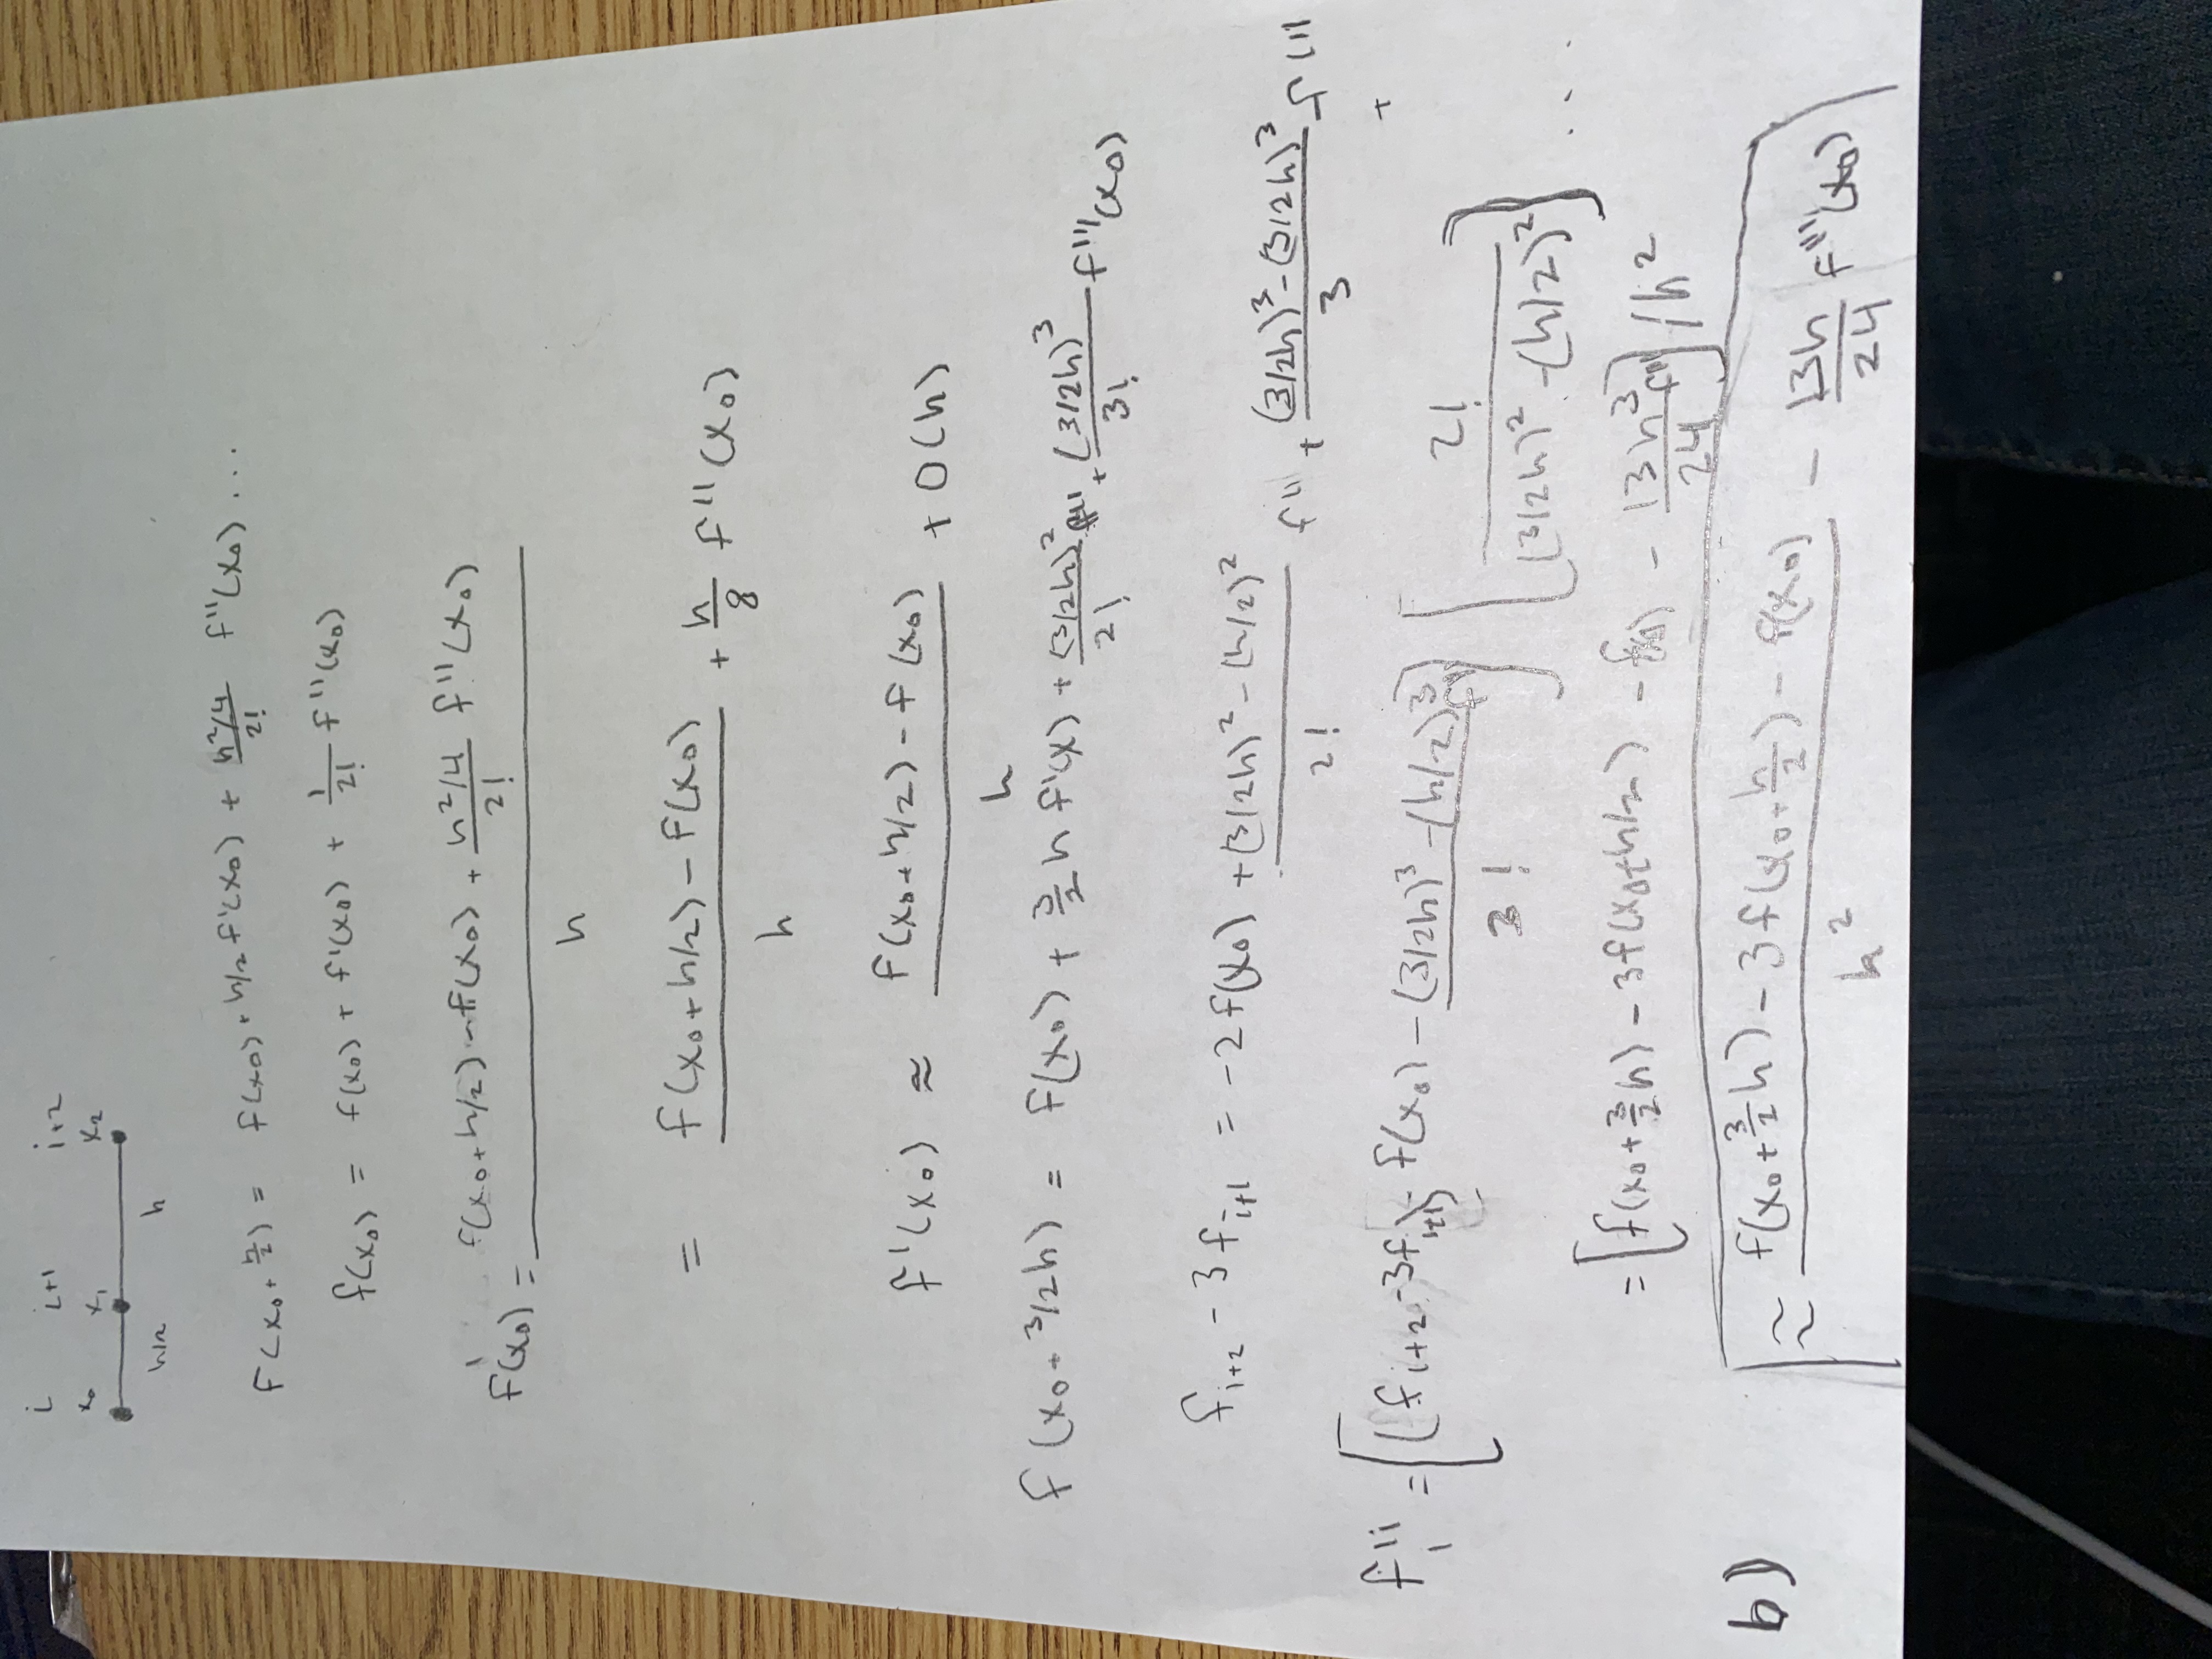 i i+1 i+2
x₀ x₁ x₂
h/2 h
F(x₀ + h/2) = f(x₀) + h/2 f'(x₀) + (h²/4)/2! f''(x₀) ...
f(x₀) = f(x₀) + f'(x₀) + 1/2! f''(x₀)
F'(x₀) = (f(x₀+h/2) - f(x₀) + (h²/4)/2! f''(x₀)) / h
= (f(x₀+h/2) - F(x₀)) / h + h/8 f''(x₀)
f'(x₀) ≈ (F(x₀+h/2) - f(x₀)) / h + O(h)
f(x₀+3/2h) = f(x₀) + 3/2 h f'(x) + (3/2h)²/2! f'' + (3/2h)³/3! f'''(x₀)
fᵢ₊₂ - 3fᵢ₊₁ = -2f(x₀) + ((3/2h)² - (h/2)²)/2! f'' + ((3/2h)³ - (3/2h)³)/3 f''' +
f''ᵢ = [(fᵢ₊₂ - 3fᵢ₊₁) - f(x₀) - ((3/2h)³ - (h/2)³)/3! f'''] [2!/((3/2h)² - (h/2)²)] ....
= [f(x₀+3/2h) - 3f(x₀+h/2) - f(x₀) - 13h³/24 f'''] / h²
b) ≈ (f(x₀+3/2h) - 3f(x₀+h/2) - f(x₀)) / h² - 13h/24 f'''(x₀)